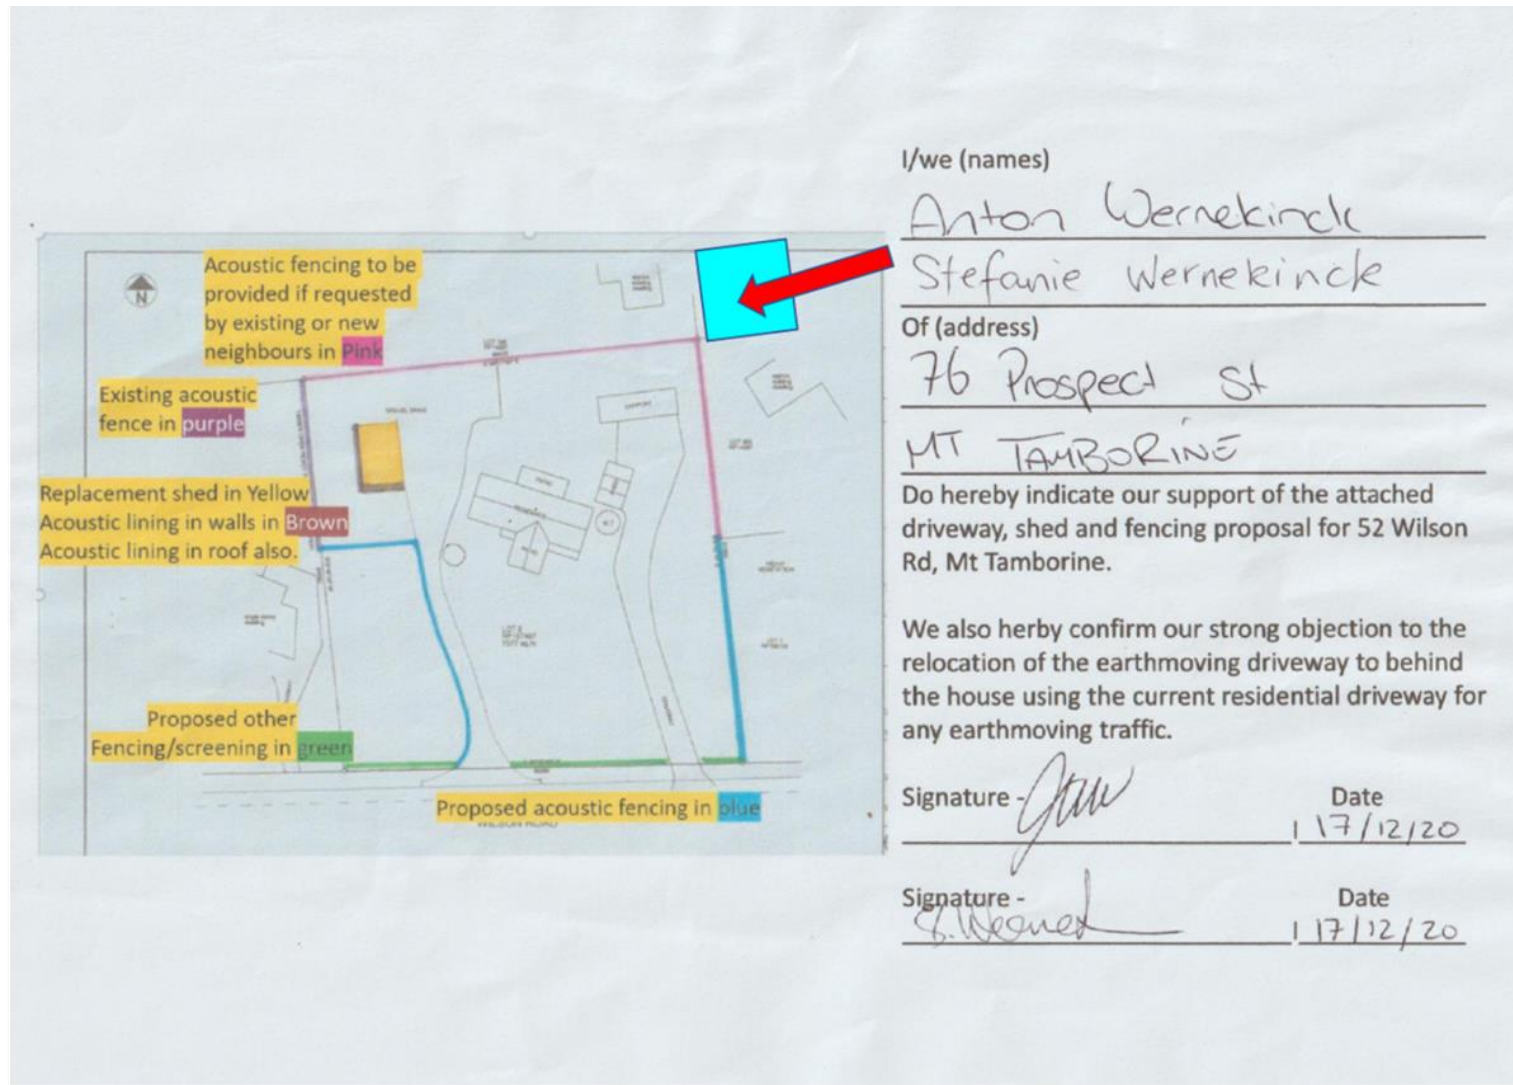 Acoustic fencing to be
provided if requested
by existing or new
neighbours in Pink
Existing acoustic
fence in purple
Replacement shed in Yellow
Acoustic lining in walls in Brown
Acoustic lining in roof also.
Proposed other
Fencing/screening in green
Proposed acoustic fencing in blue
WILSON ROAD
N
I/we (names)
Anton Wernekinck
Stefanie Wernekinck
Of (address)
76 Prospect St
MT TAMBORINE
Do hereby indicate our support of the attached
driveway, shed and fencing proposal for 52 Wilson
Rd, Mt Tamborine.
We also herby confirm our strong objection to the
relocation of the earthmoving driveway to behind
the house using the current residential driveway for
any earthmoving traffic.
Signature - Date
17/12/20
Signature - Date
S. Wernek 17/12/20